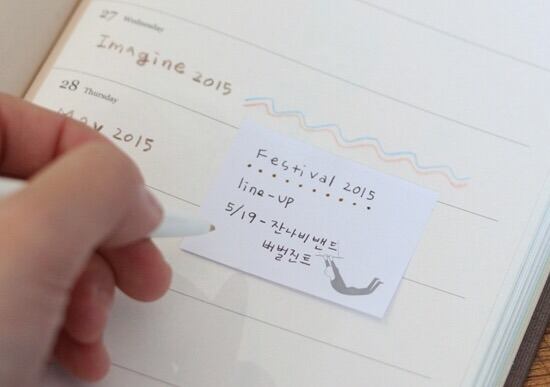 27 Wednesday
Imagine 2015
28 Thursday
May 2015
Festival 2015
line-up
5/19-잔나비밴드
버벌진트